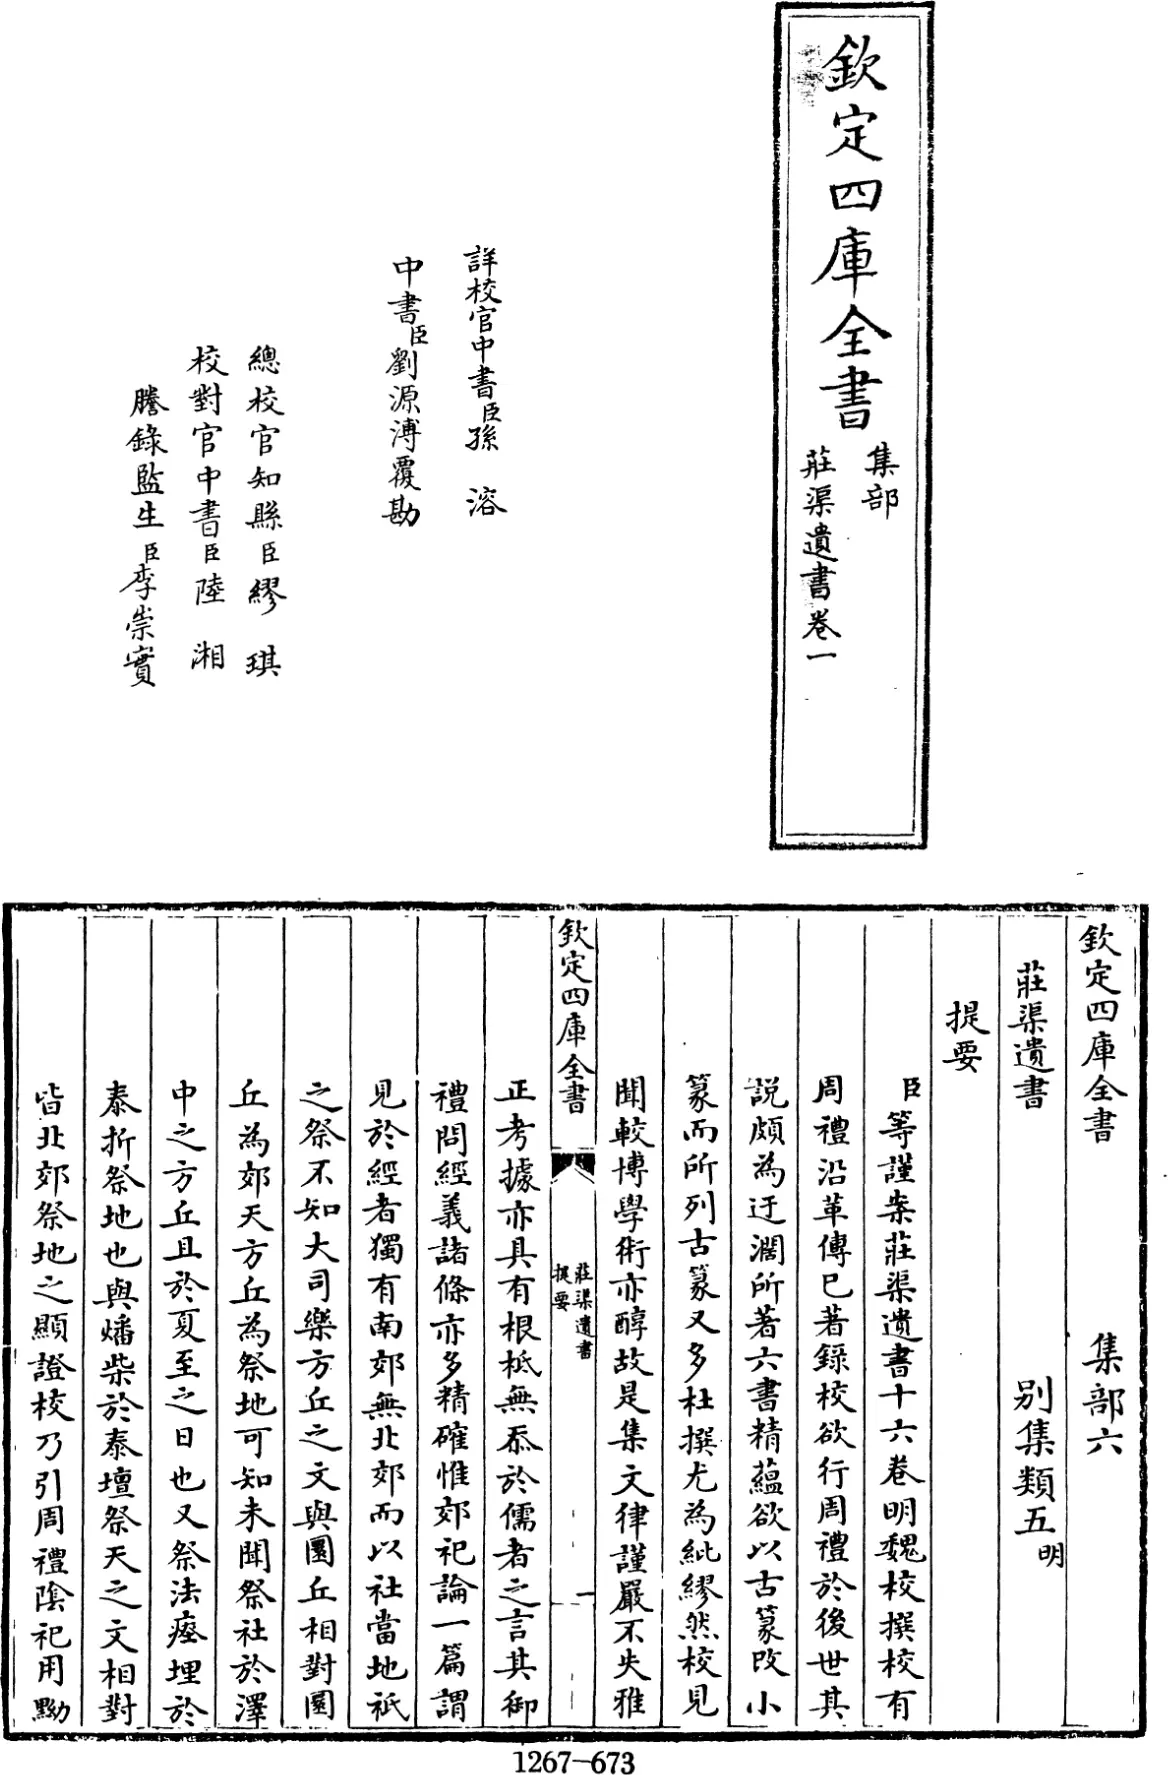 欽定四庫全書
集部
莊渠遺書卷一
詳校官中書臣孫溶
中書臣劉源溥覆勘
總校官知縣臣繆琪
校對官中書臣陸湘
謄錄監生臣李崇實
欽定四庫全書 集部六
莊渠遺書 別集類五明
提要
臣等謹案莊渠遺書十六卷明魏校撰校有
周禮沿革傳已著錄校欲行周禮於後世其
説頗為迂濶所著六書精蘊欲以古篆改小
篆而所列古篆又多杜撰尤為紕繆然校見
聞較博學術亦醇故是集文律謹嚴不失雅
欽定四庫全書
莊渠遺書
提要
一
正考據亦具有根柢無忝於儒者之言其御
禮問經義諸條亦多精確惟郊祀論一篇謂
見於經者獨有南郊無北郊而以社當地祇
之祭不知大司樂方丘之文與圜丘相對圜
丘為郊天方丘為祭地可知未聞祭社於澤
中之方丘且於夏至之日也又祭法瘞埋於
泰折祭地也與燔柴於泰壇祭天之文相對
皆北郊祭地之顯證校乃引周禮陰祀用黝
1267-673